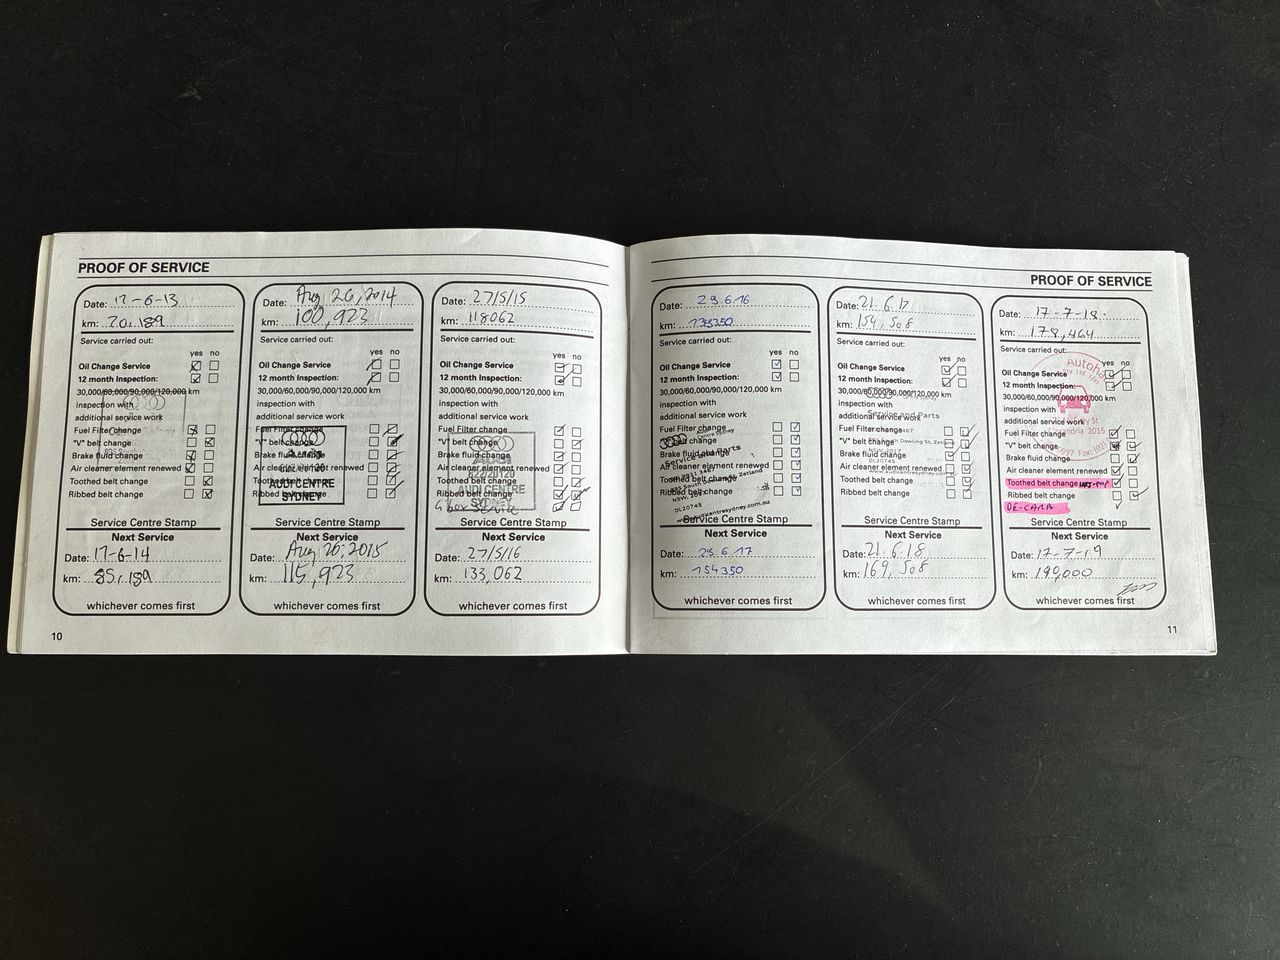 PROOF OF SERVICE
Date: 17-6-13
km: 70,189
Service carried out:
yes no
Oil Change Service
12 month Inspection:
30,000/60,000/90,000/120,000 km
inspection with
additional service work
Fuel Filter change
"V" belt change
Brake fluid change
Air cleaner element renewed
Toothed belt change
Ribbed belt change
Service Centre Stamp
Next Service
Date: 17-6-14
km: 85,189
whichever comes first
Date: Aug 26, 2014
km: 100,923
Service carried out:
yes no
Oil Change Service
12 month Inspection:
30,000/60,000/90,000/120,000 km
inspection with
additional service work
Fuel Filter change
"V" belt change
Brake fluid change
Air cleaner element renewed
Toothed belt change
Ribbed belt change
AUDI CENTRE
SYDNEY
Service Centre Stamp
Next Service
Date: Aug 20, 2015
km: 115,923
whichever comes first
Date: 27/5/15
km: 118062
Service carried out:
yes no
Oil Change Service
12 month Inspection:
30,000/60,000/90,000/120,000 km
inspection with
additional service work
Fuel Filter change
"V" belt change
Brake fluid change
Air cleaner element renewed
Toothed belt change
Ribbed belt change
Audi
822/20120
AUDI CENTRE
SYDNEY
G box Service
Service Centre Stamp
Next Service
Date: 27/5/16
km: 133,062
whichever comes first
10
PROOF OF SERVICE
Date: 29.6.16
km: 139350
Service carried out:
yes no
Oil Change Service
12 month Inspection:
30,000/60,000/90,000/120,000 km
inspection with
additional service work
Fuel Filter change
belt change
Brake fluid change
Air cleaner element renewed
Toothed belt change
Ribbed belt change
Centre Sydney
Service and Parts
DL20745
Service Centre Stamp
Next Service
Date: 29.6.17
km: 154350
whichever comes first
Date: 21.6.17
km: 154,508
Service carried out:
yes no
Oil Change Service
12 month Inspection:
30,000/60,000/90,000/120,000 km
inspection with
additional service work
Service and Parts
Fuel Filter change
"V" belt change
Brake fluid change
Air cleaner element renewed
Toothed belt change
Ribbed belt change
NSW 2017
DL20745
Service Centre Stamp
Next Service
Date: 21.6.18
km: 169,508
whichever comes first
Date: 17-7-18
km: 178,464
Service carried out:
yes no
Oil Change Service
12 month Inspection:
30,000/60,000/90,000/120,000 km
inspection with
additional service work
Fuel Filter change
"V" belt change
Brake fluid change
Air cleaner element renewed
Toothed belt change
Ribbed belt change
DE-CARB
Alexandria 2015
Service Centre Stamp
Next Service
Date: 17-7-19
km: 190,000
whichever comes first
11